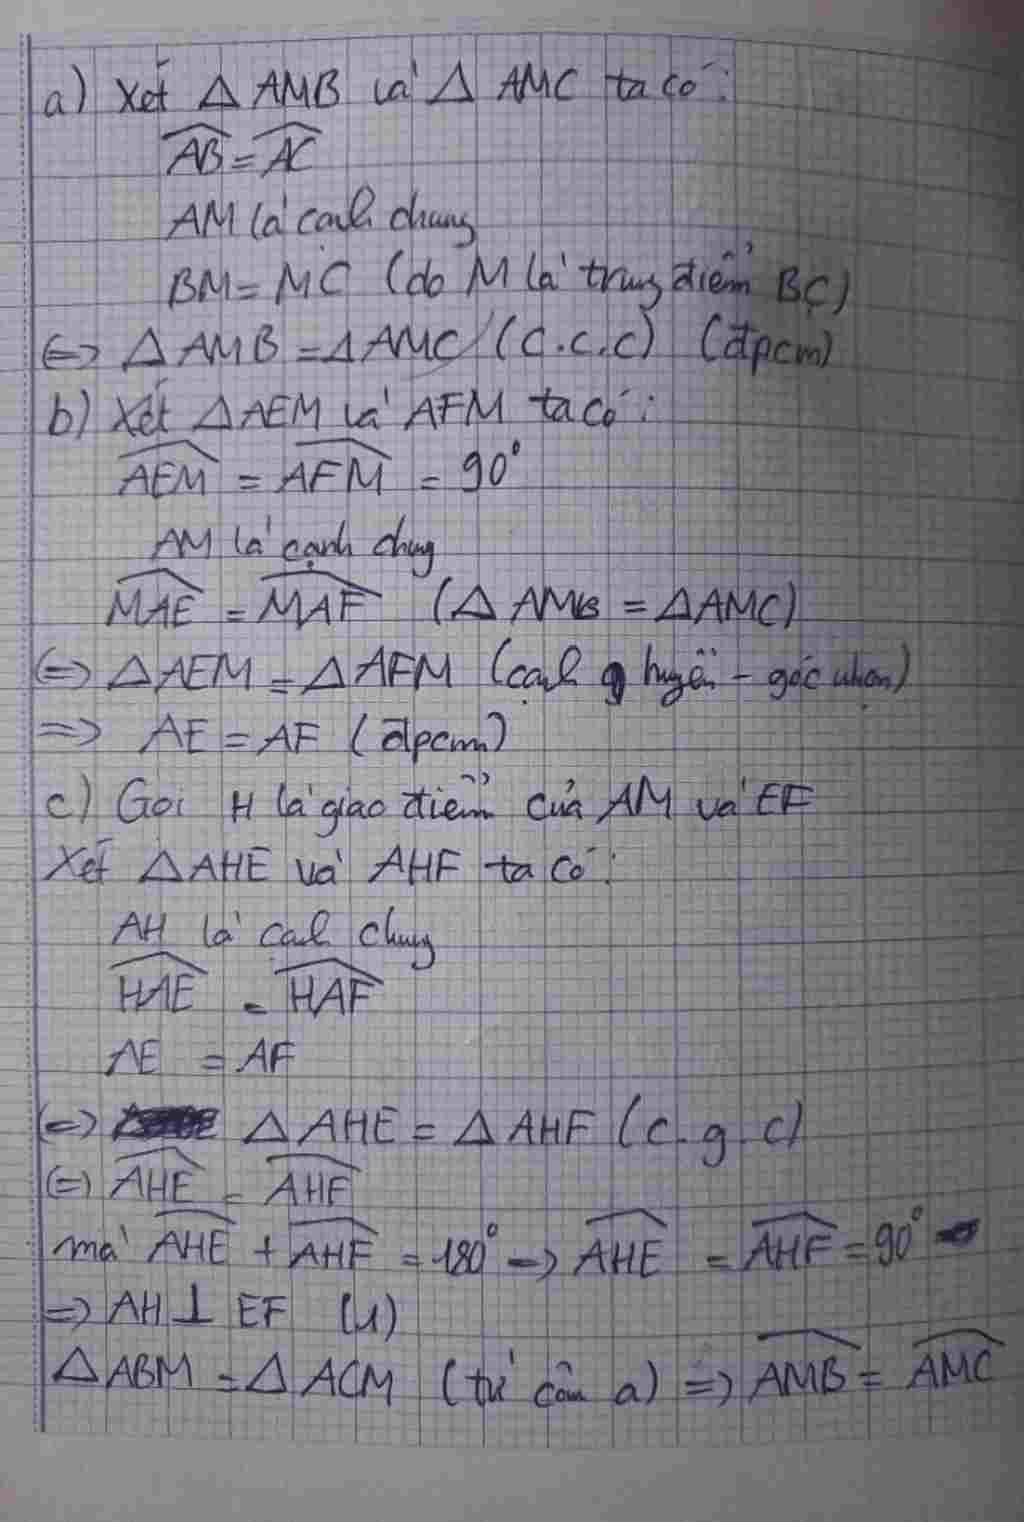 a) Xét △ AMB và △ AMC ta có:
\widehat{AB} = \widehat{AC}
AM là cạnh chung
BM = MC (do M là trung điểm BC)
<=> △ AMB = △ AMC (c.c.c) (đpcm)
b) Xét △AEM và AFM ta có:
\widehat{AEM} = \widehat{AFM} = 90°
AM là cạnh chung
\widehat{MAE} = \widehat{MAF} (△ AMB = △AMC)
<=> △AEM = △ AFM (cạnh huyền - góc nhọn)
=> AE = AF (đpcm)
c) Gọi H là giao điểm của AM và EF
Xét △AHE và AHF ta có:
AH là cạnh chung
\widehat{HAE} = \widehat{HAF}
AE = AF
<=> △ AHE = △ AHF (c.g.c)
<=> \widehat{AHE} = \widehat{AHF}
mà \widehat{AHE} + \widehat{AHF} = 180° => \widehat{AHE} = \widehat{AHF} = 90°
=> AH ⊥ EF (1)
△ABM = △ ACM (từ câu a) => \widehat{AMB} = \widehat{AMC}